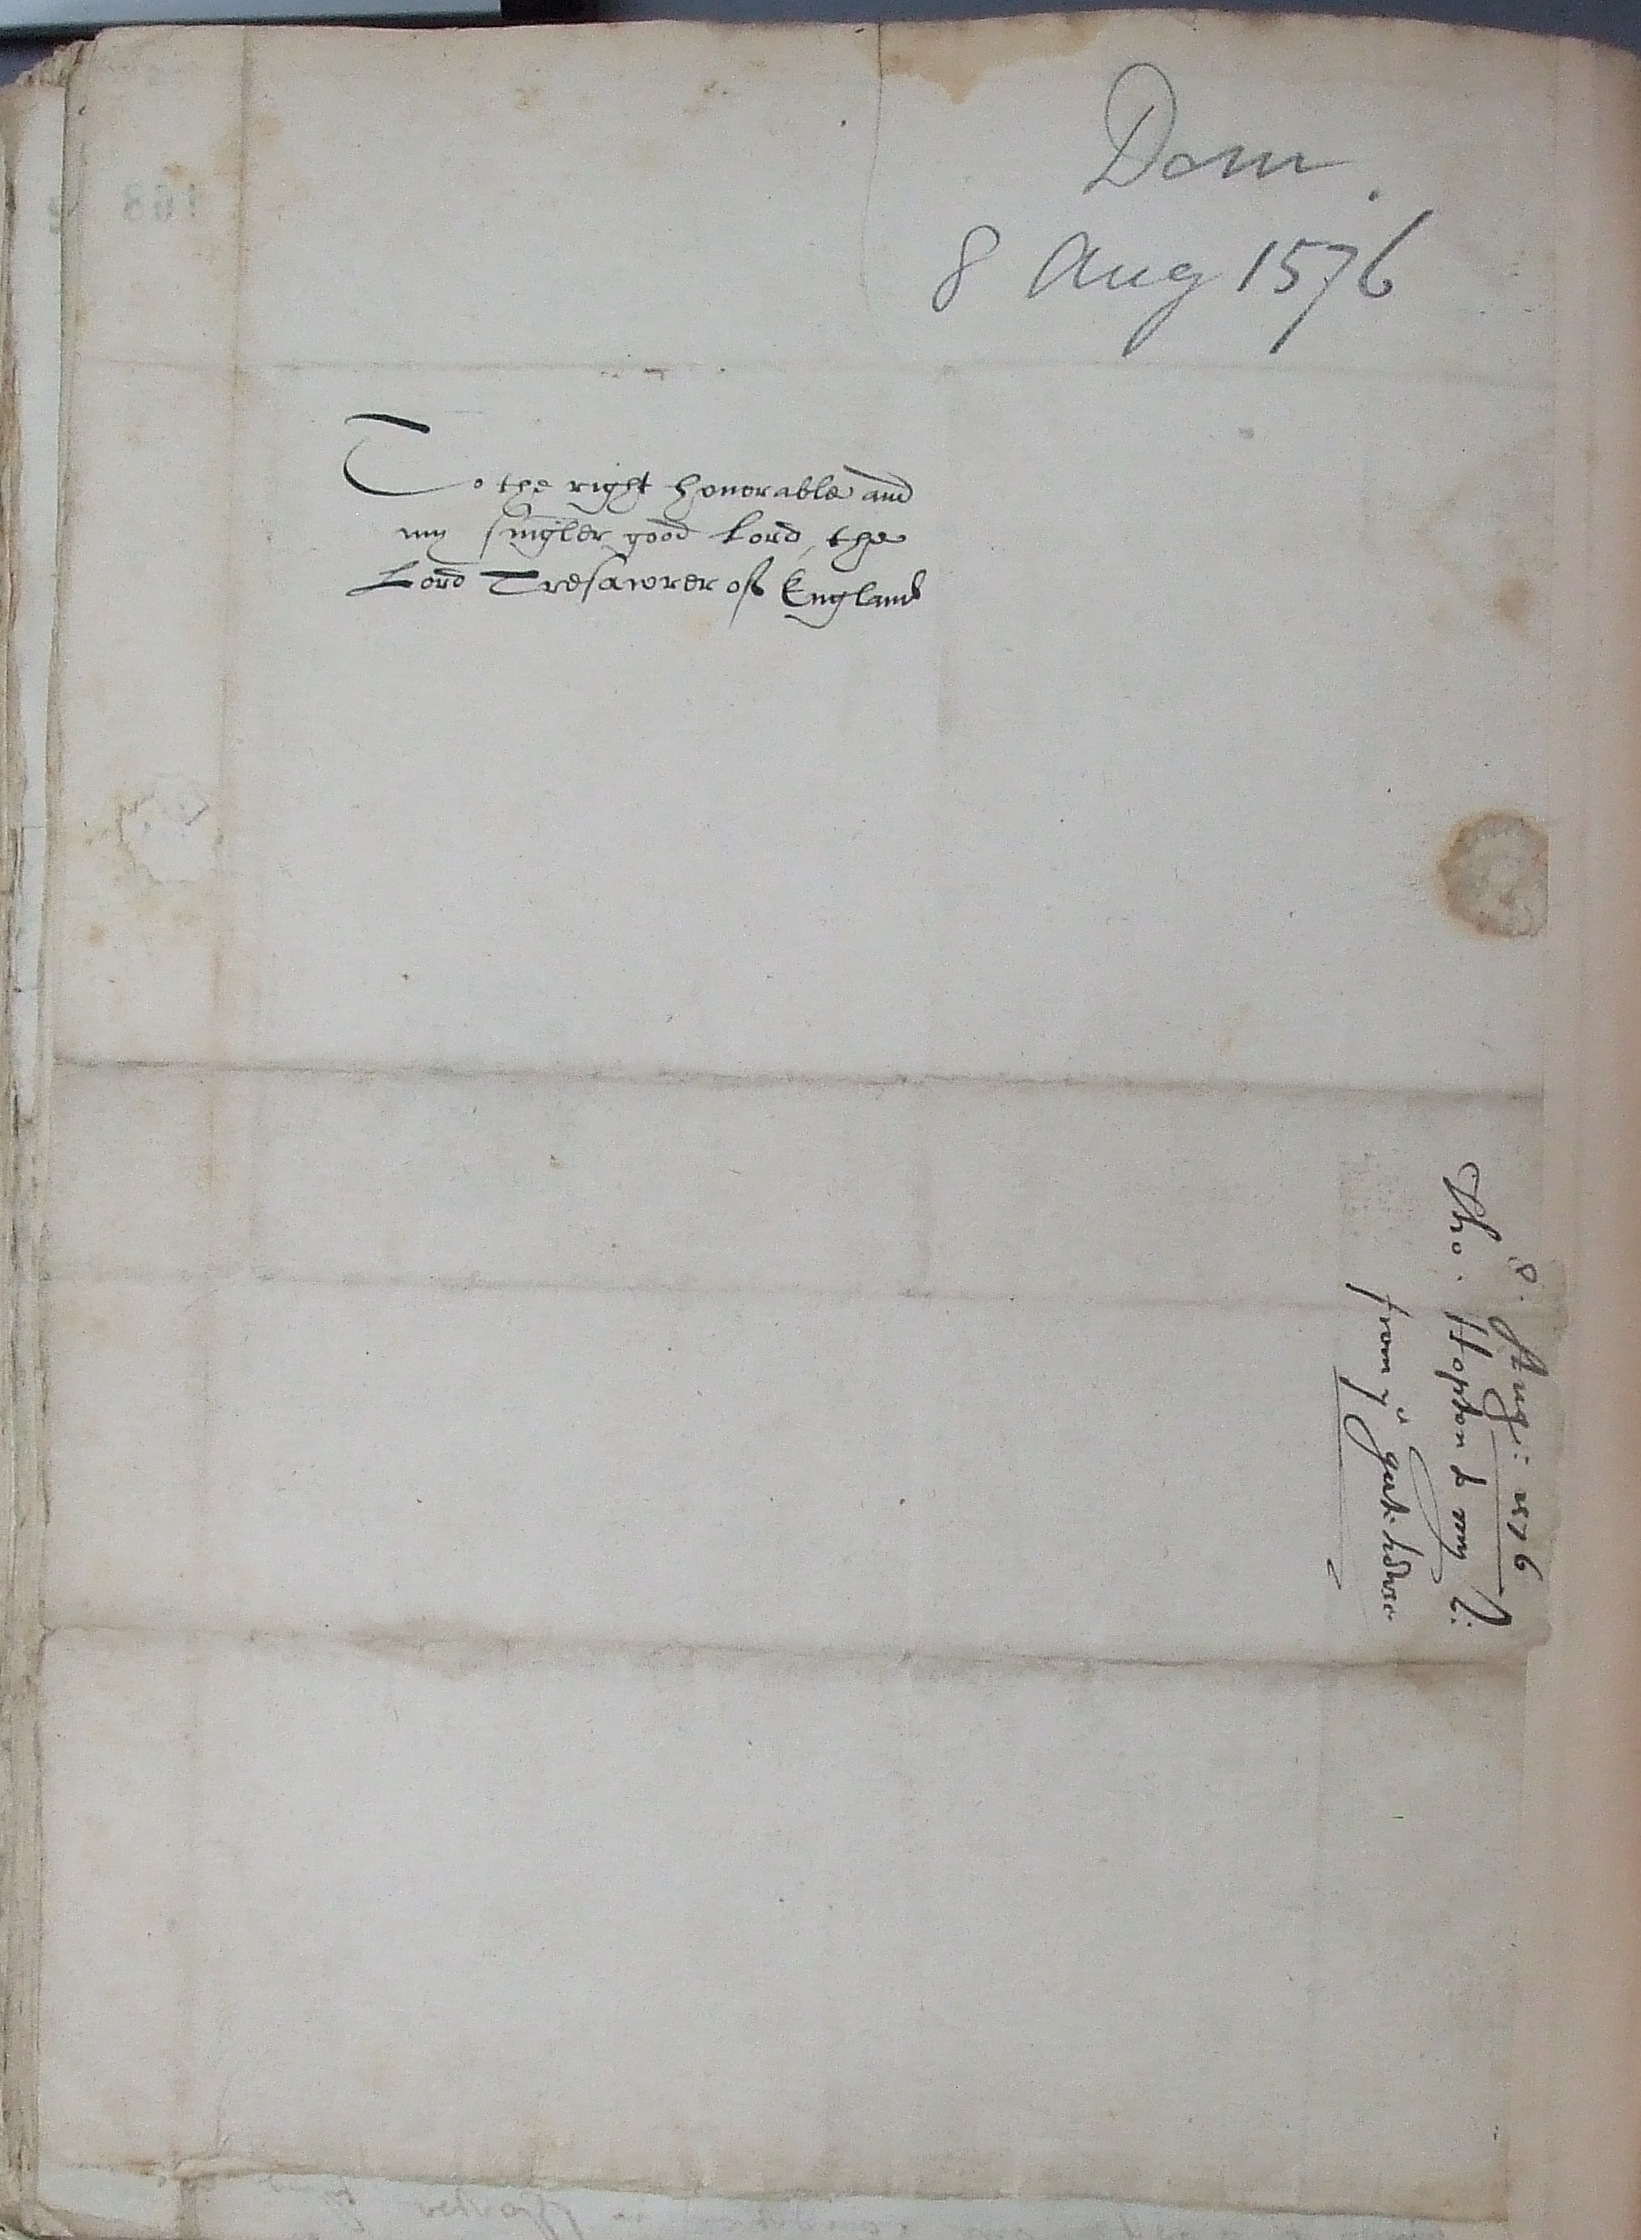 Dom.
8 Aug 1576
To the right honorable and
my singler good Lord, the
Lord Tresawrer off England
8. Aug: 1576
Tho. Hopton to my L:
from yͤ gatehowse